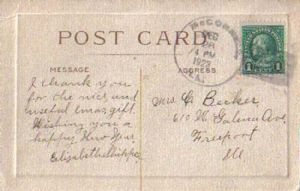 POST CARD
McCORM
DEC
28
4 PM
1922
MESSAGE
ADDRESS
I thank you
for the nice and
useful Xmas gift.
Wishing you a
happy New Year
1 CENT 1
Mrs. C. Becker
610 W. Galena Ave
Freeport
Ill